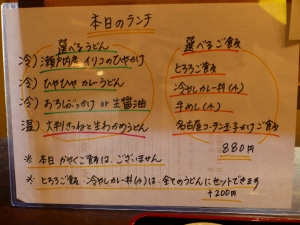 本日のランチ
選べるうどん
冷) 瀬戸内産 イリコのひやかけ
冷) ひやひや カレーうどん
冷) おろしぶっかけ or 生醤油
温) 大判きつねと生わかめうどん
選べるご飯
とろろご飯
冷やしカレー丼(小)
牛めし(小)
名古屋コーチン玉子かけご飯
880円
※ 本日 かやくご飯は、ございません
※ とろろご飯・冷やしカレー丼(小)は、全てのうどんにセットできます
+200円